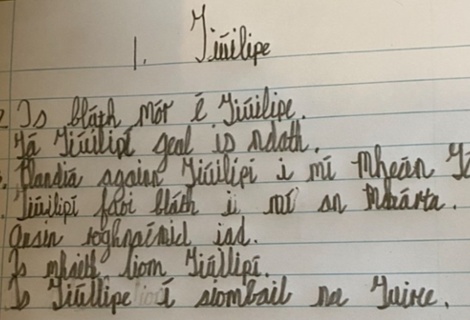 1. Tiúilipe
2. Is bláth mór é Tiúilipe.
Tá Tiúilipí geal is ndath.
Plandia againn Tiúilipí i mí Mheán
Tiúilipí faoi bláth i mí an Mhárta.
ansin roghnaímid iad.
Is mhaith liom Tiúllipí.
Is Tiúllipe í siombail na Tuirce.